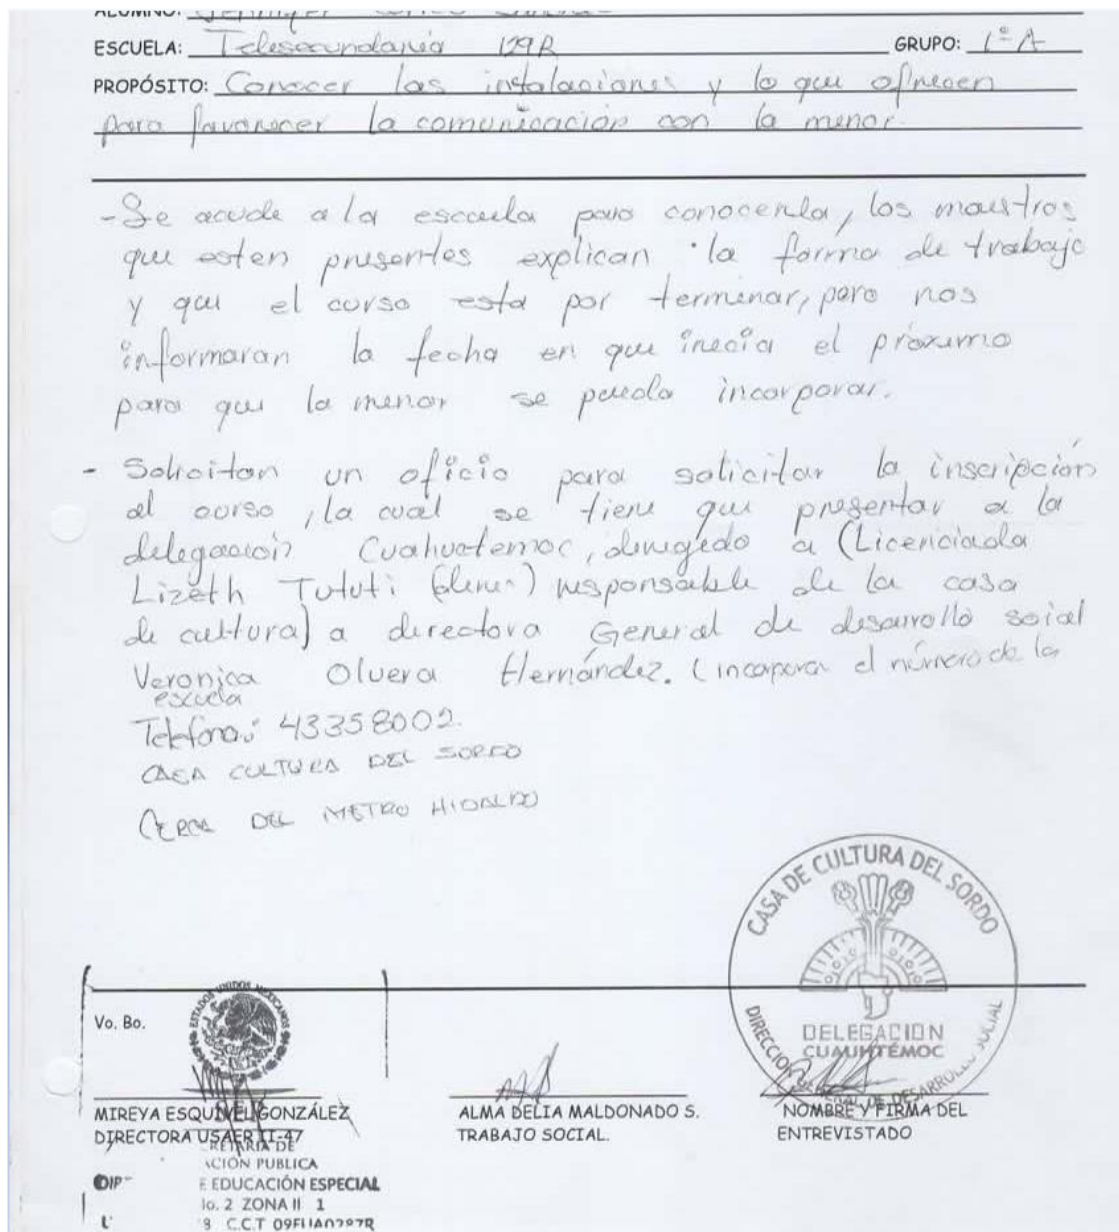 ALUMNO: Jennifer
ESCUELA: Telesecundaria 129R GRUPO: 1º A
PROPÓSITO: Conocer las instalaciones y lo que ofrecen
para favorecer la comunicación con la menor.
- Se acude a la escuela para conocerla, los maestros
que esten presentes explican la forma de trabajo
y que el curso esta por terminar, pero nos
informaran la fecha en que inicia el próximo
para que la menor se pueda incorporar.
- Solicitan un oficio para solicitar la inscripción
al curso, la cual se tiene que presentar a la
delegación Cuahutemoc, dirigido a (Licenciada
Lizeth Tututi) responsable de la casa
de cultura) a directora General de desarrollo soial
Veronica Olvera Hernández. (incorpora el número de la
escuela
Telefono: 43358002.
CASA CULTURA DEL SORDO
CERCA DEL METRO HIDALGO
CASA DE CULTURA DEL SORDO
DELEGACION
CUAUHTÉMOC
DIRECCION GENERAL DE DESARROLLO SOCIAL
ESTADOS UNIDOS MEXICANOS
Vo. Bo.
MIREYA ESQUIVEL GONZÁLEZ
DIRECTORA USAER II-47
ALMA DELIA MALDONADO S.
TRABAJO SOCIAL.
NOMBRE Y FIRMA DEL
ENTREVISTADO
RETARIA DE
ACIÓN PUBLICA
DIP E EDUCACIÓN ESPECIAL
lo. 2 ZONA II 1
C.C.T 09FUA0297R